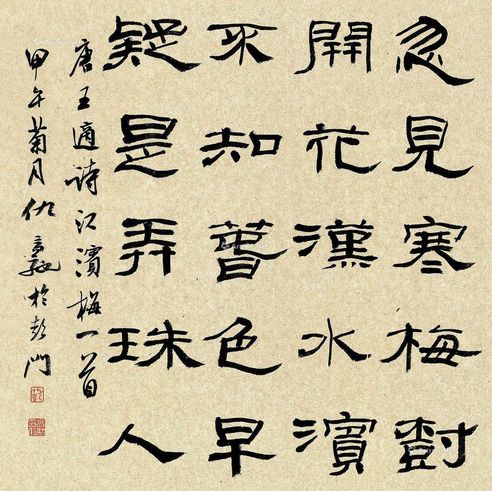 忽見寒梅樹
開花漢水濱
不知春色早
疑是弄珠人
唐王適詩江濱梅一首
甲午菊月仇高馳於彭門